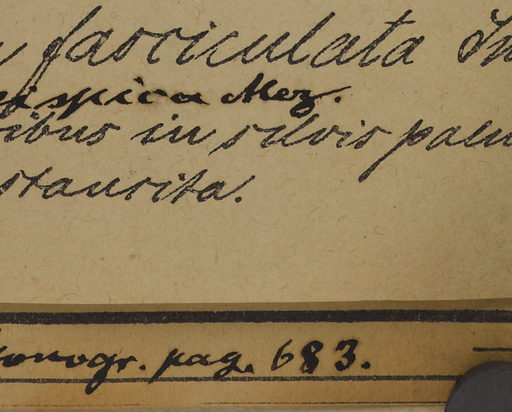 fasciculata
spica Mez.
ribus in silvis palu
staurita.
onogr. pag. 683.